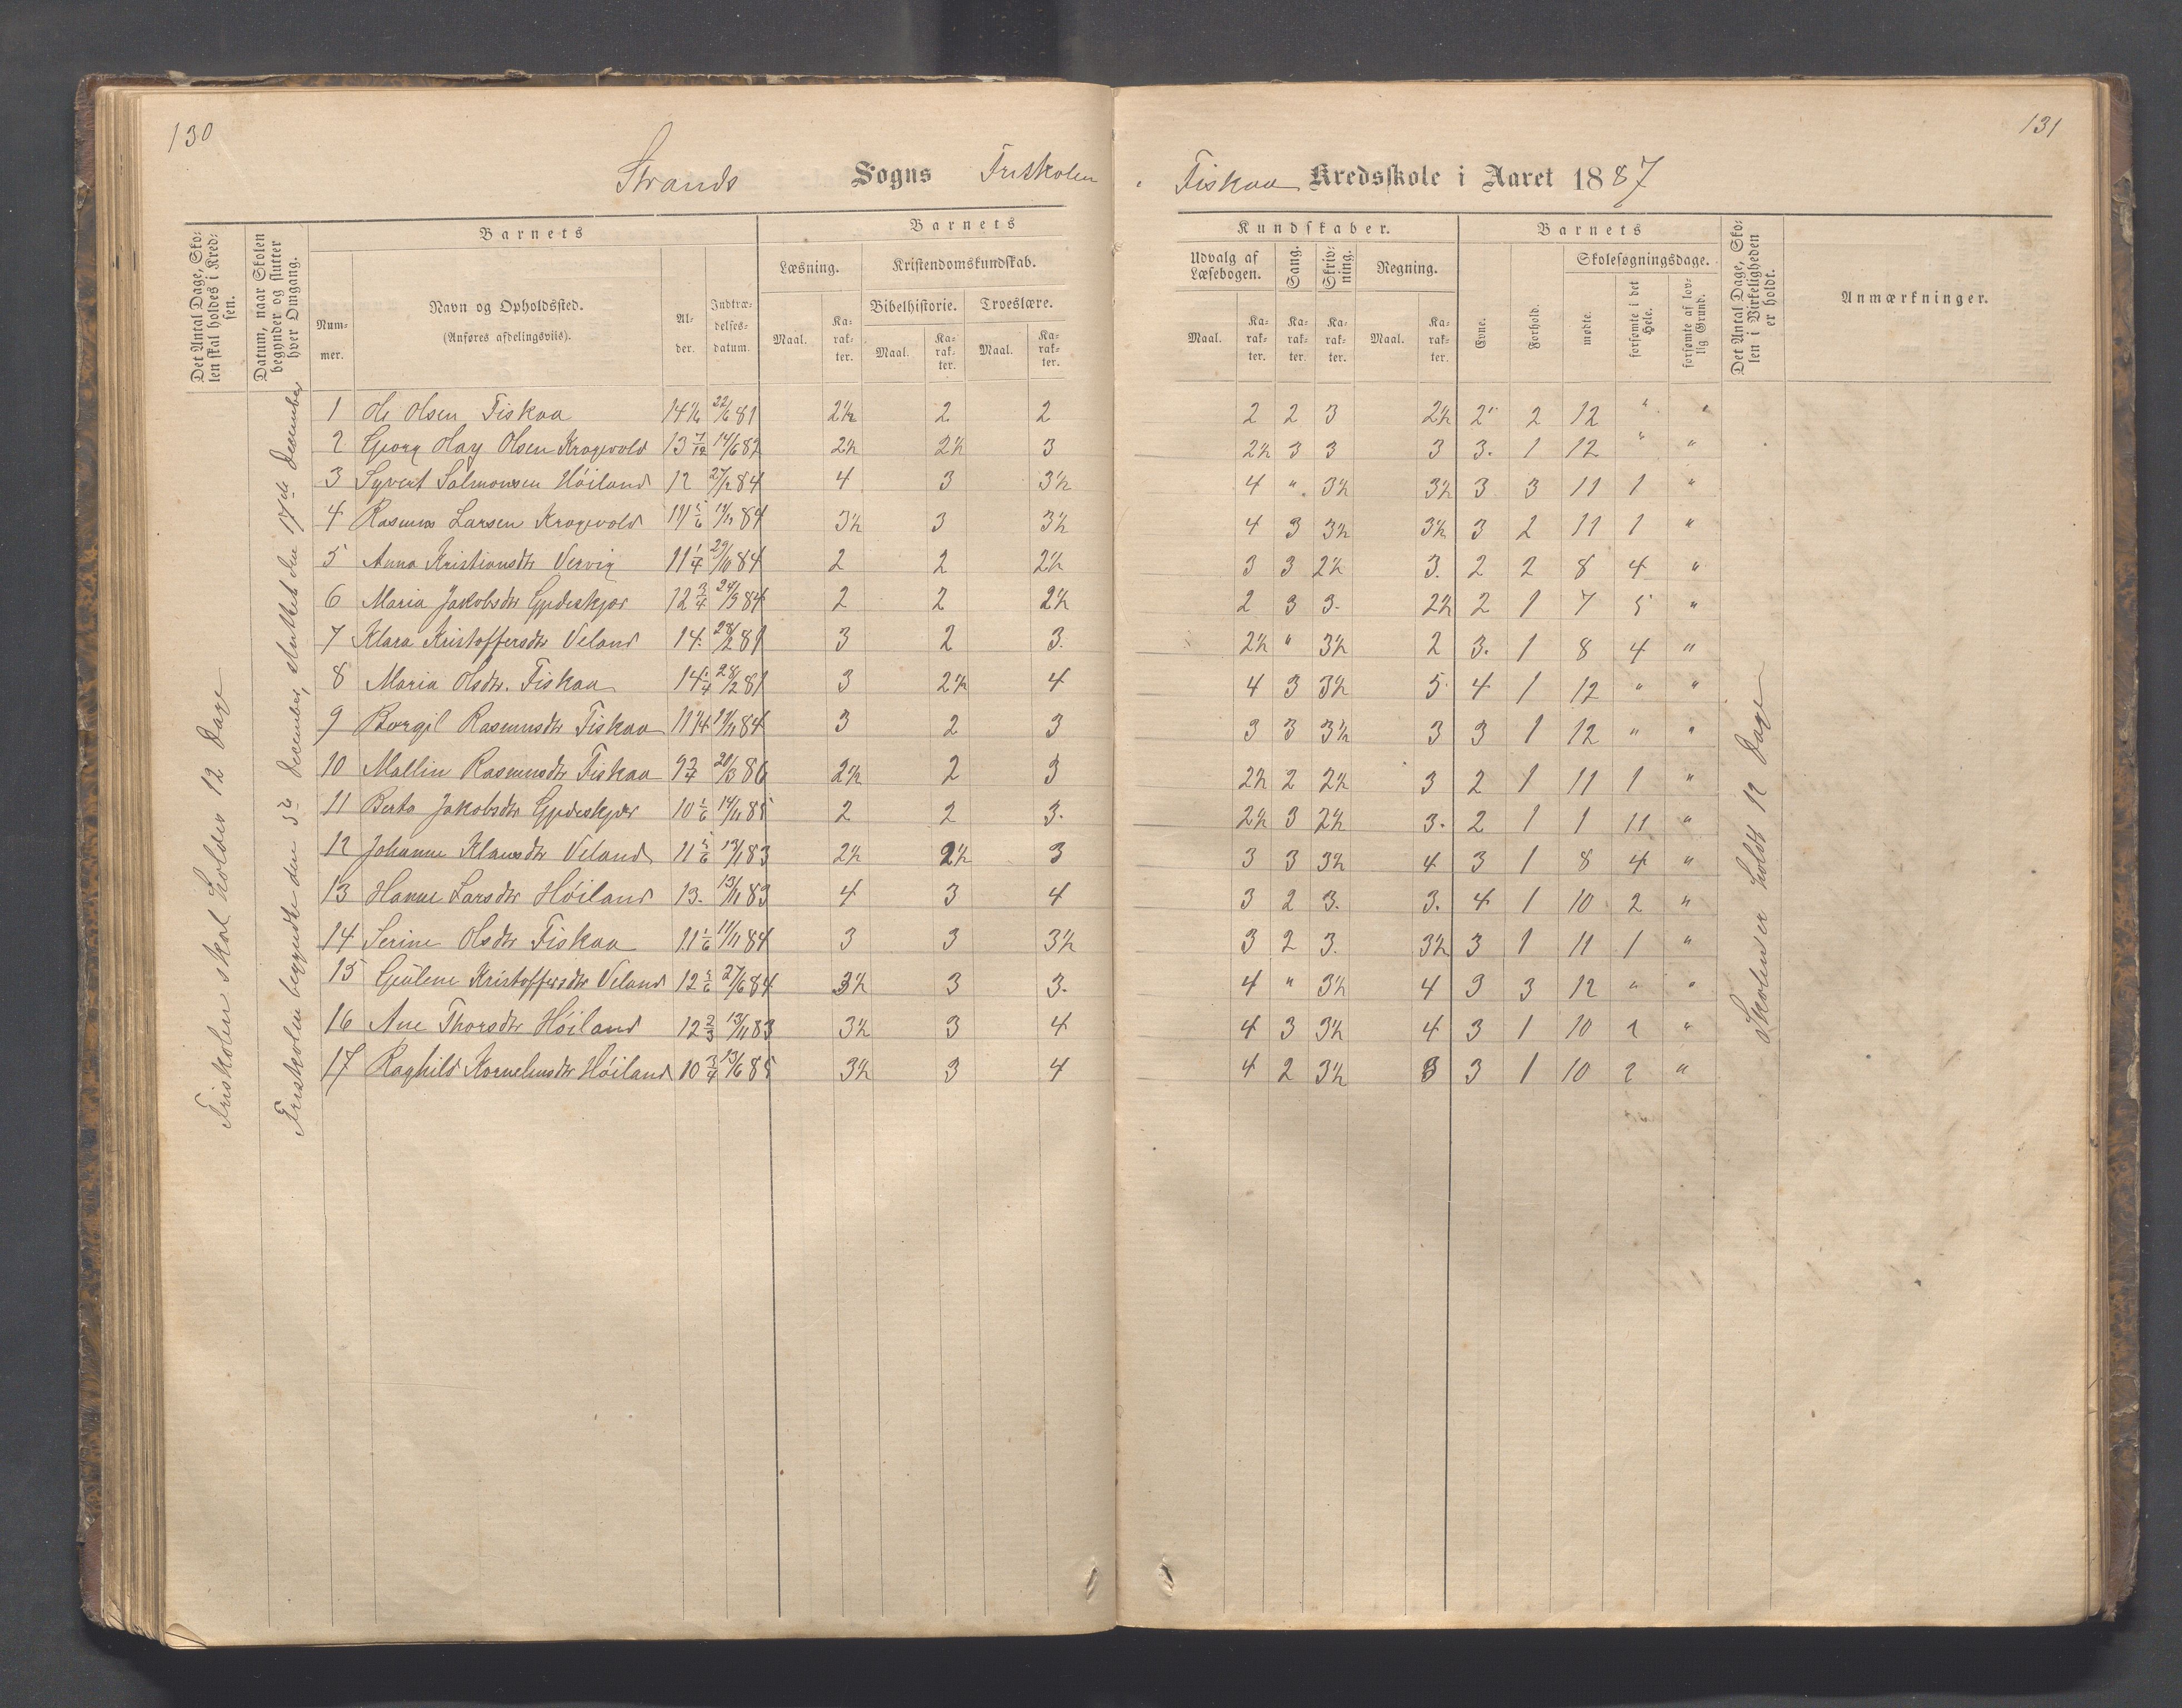 130
131
Strands Sogns Friskolen i Fiskaa Kredsskole i Aaret 1887
Det Antal Dage, Skolen skal holdes i Kredsen.
Datum, naar Skolen begynder og slutter hver Omgang.
Barnets
Nummer.
Navn og Opholdssted.
(Anføres afdelingsviis).
Alder.
Indtrædelsesdatum.
Barnets Kundskaber.
Læsning.
Maal.
Karakter.
Kristendomskundskab.
Bibelhistorie.
Maal.
Karakter.
Troeslære.
Maal.
Karakter.
Udvalg af Læsebogen.
Maal.
Karakter.
Sang.
Karakter.
Skrivning.
Karakter.
Regning.
Maal.
Karakter.
Barnets
Evne.
Forhold.
Skolesøgningsdage.
mødte.
forsømte i det Hele.
forsømte af lovlig Grund.
Det Antal Dage, Skolen i Virkeligheden er holdt.
Anmærkninger.
Friskolen skal holdes 12 Dage
Friskolen begyndte den 5te December, sluttet den 17de December
1 Ole Olsen Fiskaa 14 1/6 22/6 81 2½ 2 2 2 2 3 2½ 2 2 12 " "
2 Georg Olay Olsen Krogevold 13 7/12 14/6 82 2½ 2½ 3 2½ 3 3 3 3. 1 12 " "
3 Syvert Salmonsen Høiland 12 27/2 84 4 3 3½ 4 " 3½ 3½ 3 3 11 1 "
4 Rasmus Larsen Krogevold 11 5/6 11/11 84 3½ 3 3½ 4 3 3½ 3½ 3 2 11 1 "
5 Anna Kristiansdtr Vervig 11 1/4 29/10 84 2 2 2½ 3 3 2½ 3. 2 2 8 4 "
6 Maria Jakobsdtr Gjedeskjær 12 3/4 24/3 84 2 2 2½ 2 3 3. 2½ 2 1 7 5 "
7 Klara Kristoffersdtr Veland 14. 28/2 81 3 2 3. 2½ " 3½ 2 3. 1 8 4 "
8 Maria Olsdtr. Fiskaa 14 1/4 28/2 81 3 2½ 4 4 3 3½ 5 4 1 12 " "
9 Borgil Rasmusdtr Fiskaa 11 1/4 11/11 84 3 2 3 3 3 3½ 3 3 1 12 " "
10 Mallin Rasmusdtr Fiskaa 9 3/4 20/3 86 2½ 2 3 2½ 2 2½ 3 2 1 11 1 "
11 Berta Jakobsdtr Gjedeskjær 10 1/6 14/11 85 2 2 3. 2½ 3 2½ 3. 2 1 1 11 "
12 Johanne Klausdtr Veland 11 5/6 13/1 83 2½ 2½ 3 3 3 3½ 4 3 1 8 4 "
13 Hanne Larsdtr Høiland 13. 13/11 83 4 3 4 3 2 3. 3. 4 1 10 2 "
14 Serine Olsdtr Fiskaa 11 1/6 11/11 84 3 3 3½ 3 2 3. 3½ 3 1 11 1 "
15 Gjuline Kristoffersdtr Veland 12 5/6 27/6 84 3½ 3 3. 4 " 3½ 4 3 3 12 " "
16 Ane Thorsdtr Høiland 12 2/3 13/11 83 3½ 3 4 4 3 3½ 4 3 1 10 2 "
17 Raghild Korneliusdtr Høiland 10 3/4 13/6 85 3½ 3 4 4 2 3½ 3 3 1 10 2 "
Skolen er holdt 12 Dage